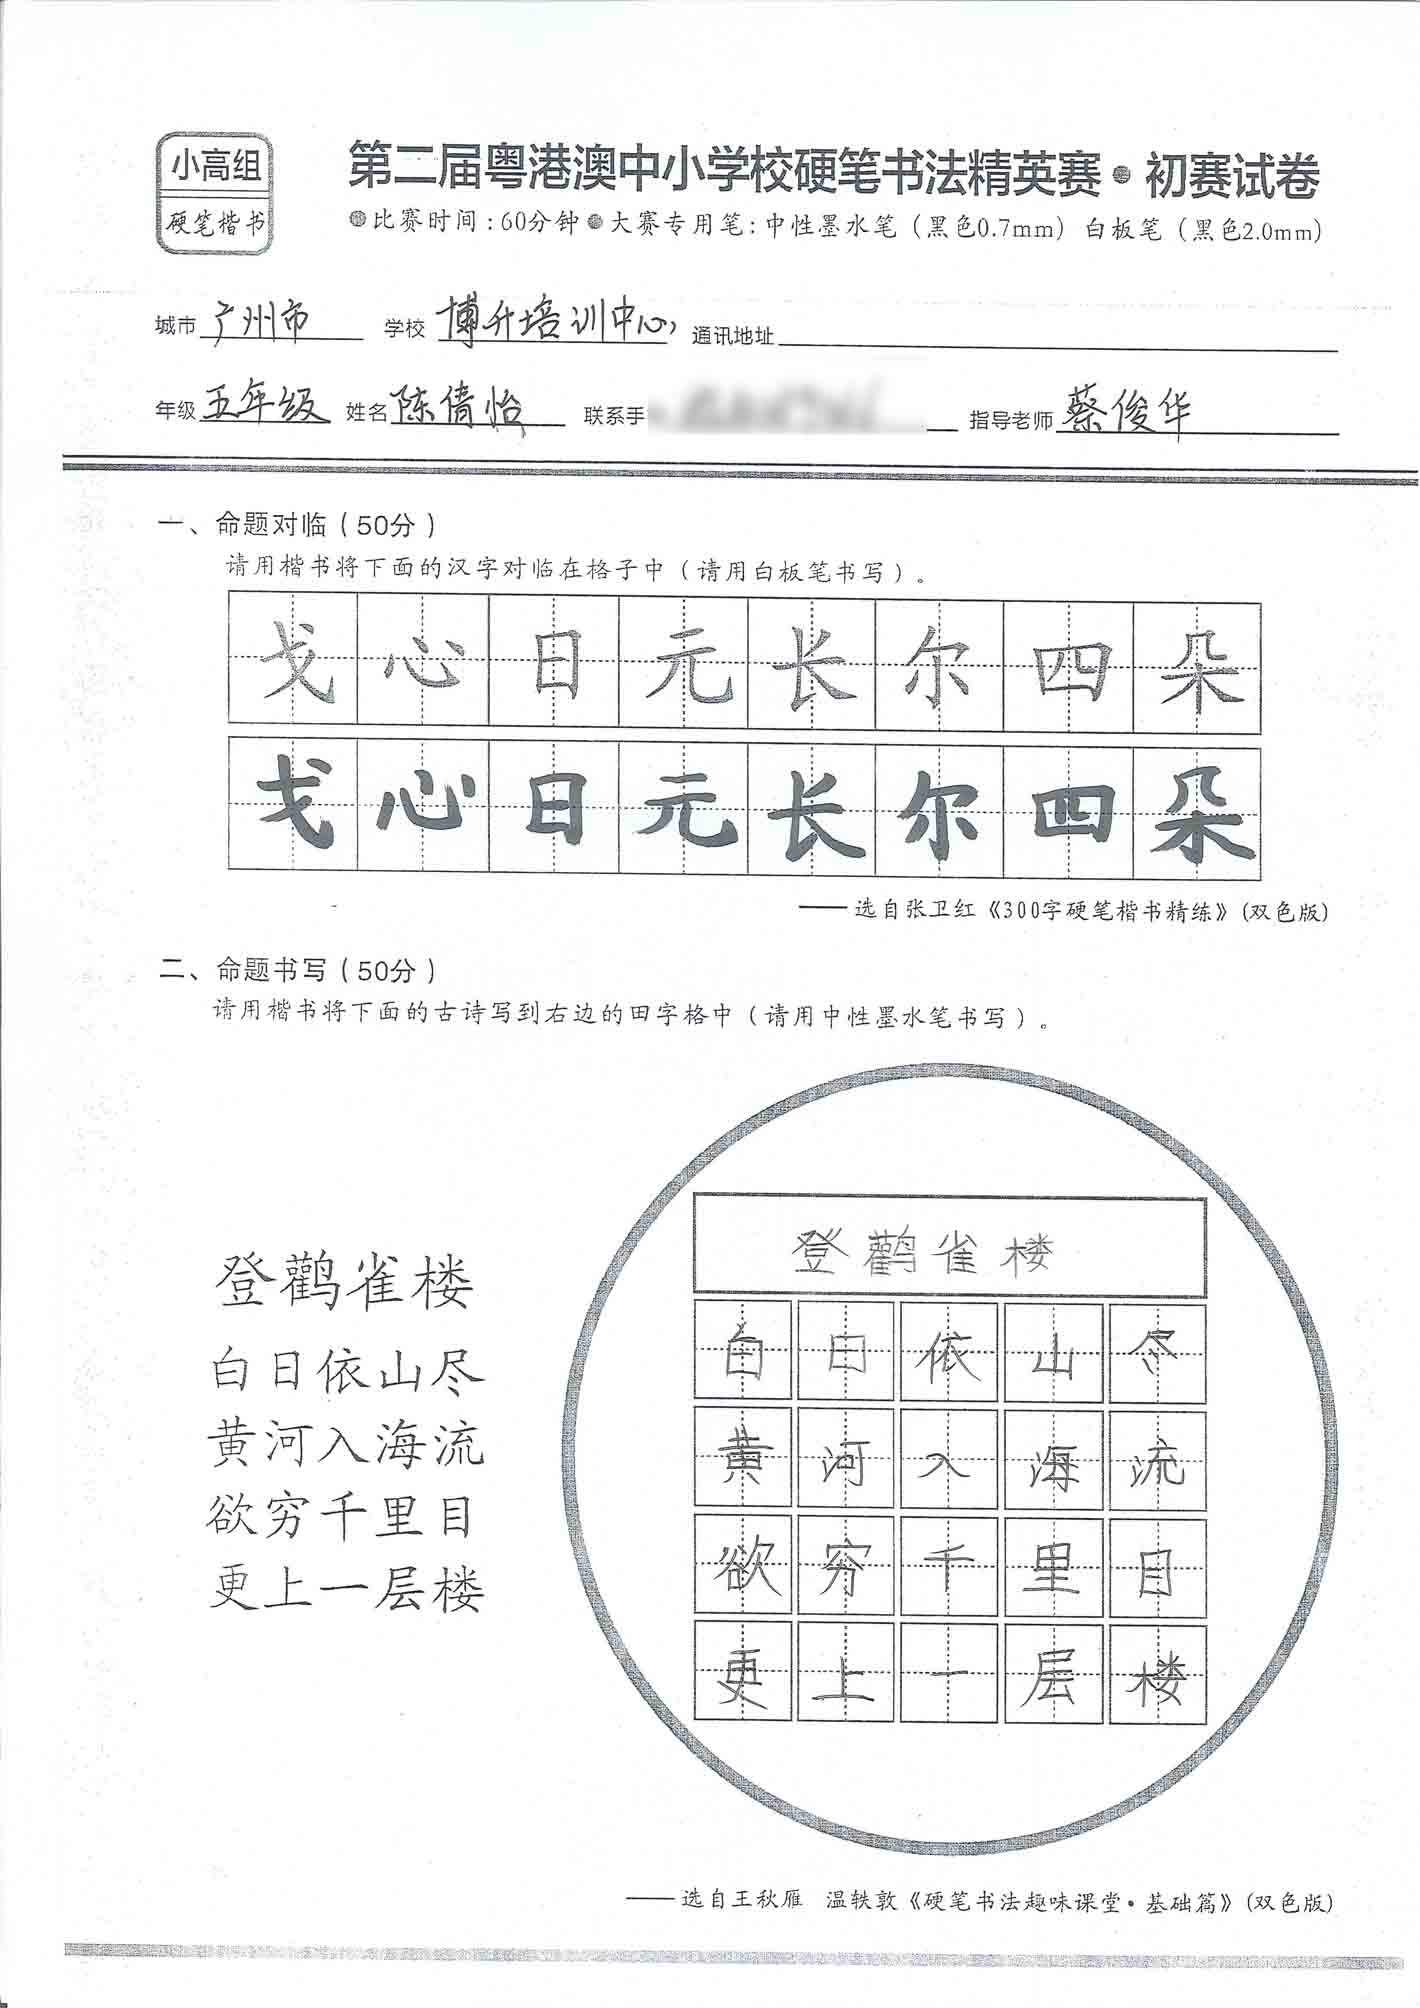 小高组
硬笔楷书
第二届粤港澳中小学校硬笔书法精英赛·初赛试卷
●比赛时间:60分钟●大赛专用笔:中性墨水笔(黑色0.7mm)白板笔(黑色2.0mm)
城市 广州市 学校 博升培训中心 通讯地址
年级 五年级 姓名 陈倩怡 联系手 指导老师 蔡俊华
一、命题对临(50分)
请用楷书将下面的汉字对临在格子中(请用白板笔书写)。
戈心日元长尔四朵
戈心日元长尔四朵
——选自张卫红《300字硬笔楷书精练》(双色版)
二、命题书写(50分)
请用楷书将下面的古诗写到右边的田字格中(请用中性墨水笔书写)。
登鹳雀楼
白日依山尽
黄河入海流
欲穷千里目
更上一层楼
登鹳雀楼
白日依山尽
黄河入海流
欲穷千里目
更上一层楼
——选自王秋雁 温轶敦《硬笔书法趣味课堂·基础篇》(双色版)